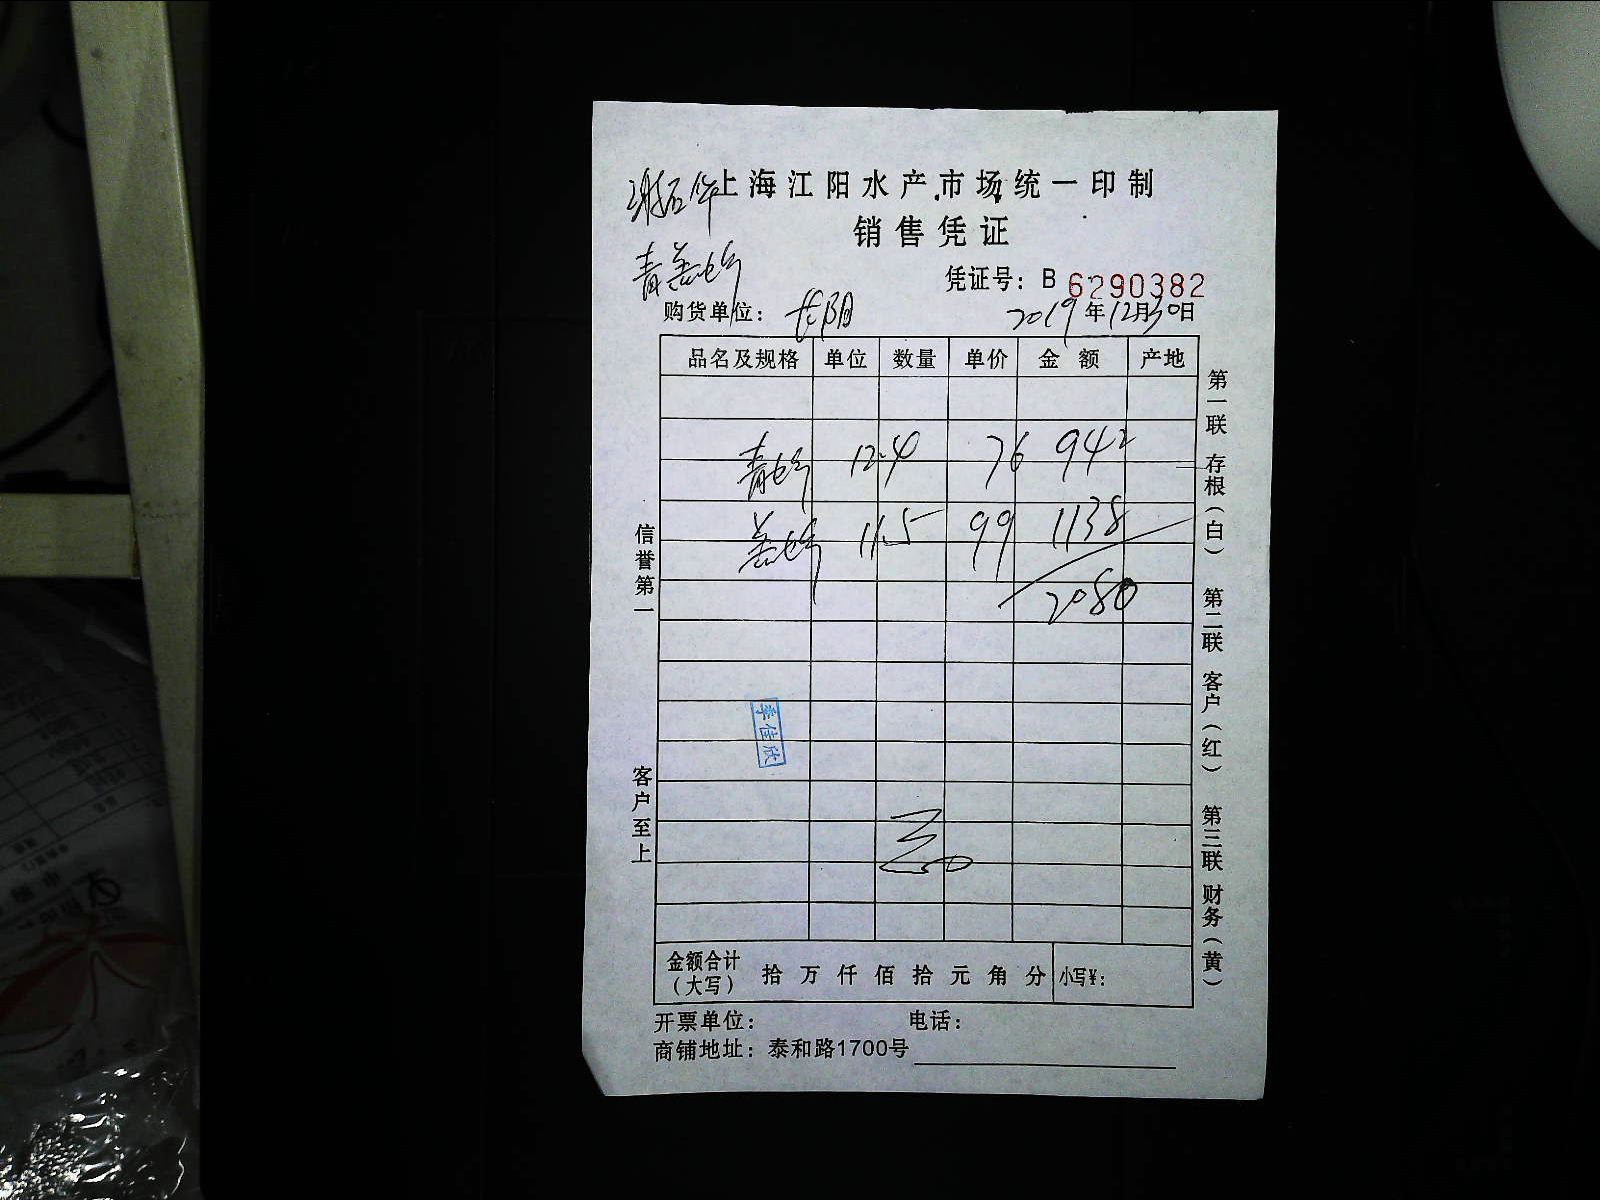 上海江阳水产市场统一印制
销售凭证
凭证号：B 6290382
购货单位： 2019年12月30日
品名及规格 单位 数量 单价 金额 产地
12.4 76 942
11.5 99 1138
2080
信誉第一
客户至上
第一联 存根（白） 第二联 客户（红） 第三联 财务（黄）
李佳欣
金额合计（大写） 拾 万 仟 佰 拾 元 角 分 小写¥：
开票单位： 电话：
商铺地址：泰和路1700号